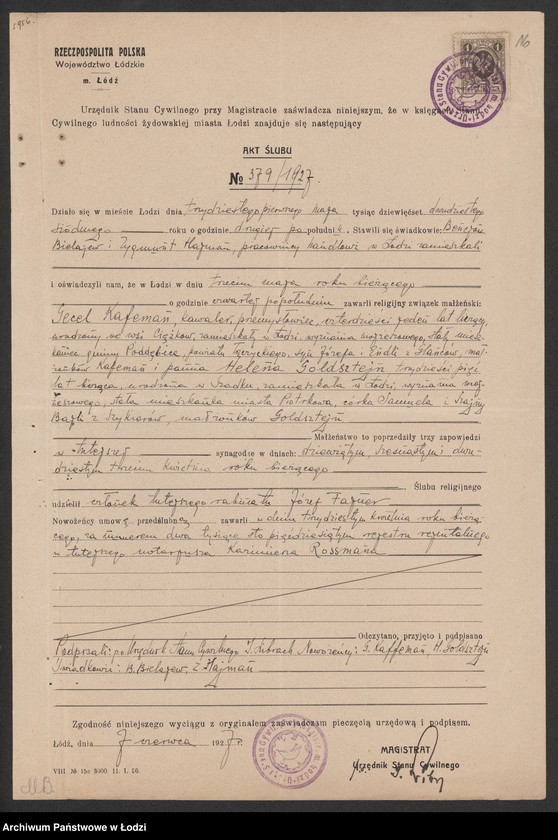 1926.
No
RZECZPOSPOLITA POLSKA
Województwo Łódzkie
m. Łódź
1
Urzędnik Stanu Cywilnego przy Magistracie zaświadcza niniejszym, że w księga
Cywilnego ludności żydowskiej miasta Łodzi znajduje się następujący
AKT ŚLUBU
№ 379/1927.
Działo się w mieście Łodzi dnia trzydziestego pierwszego maja tysiąc dziewięćset dwudziestego
siódmego roku o godzinie drugiej po południu. Stawili się świadkowie: Bencjan
Bielajew i Zygmunt Hajman, pracownicy handlowi w Łodzi zamieszkali
i oświadczyli nam, że w Łodzi w dniu trzecim maja roku bieżącego
o godzinie czwartej popołudniu zawarli religijny związek małżeński:
Gecel Kafeman, kawaler, przemysłowiec, czterdzieści jeden lat liczący,
urodzony we wsi Ciężków, zamieszkały w Łodzi, wyznania mojżeszowego, stały miesz-
kaniec gminy Poddębice, powiatu łęczyckiego, syn Józefa i Endli z Hańców, mał-
żonków Kafeman i panna Helena Goldsztejn trzydzieści pięć
lat licząca, urodzona w Szadku, zamieszkała w Łodzi, wyznania moj-
żeszowego, stała mieszkanka miasta Piotrkowa, córka Samuela i Szajny
Bajli z Szykierów, małżonków Goldsztejn
Małżeństwo to poprzedziły trzy zapowiedzi
w tutejszej synagodze w dniach: dziewiątym, szesnastym i dwu-
dziestym trzecim kwietnia roku bieżącego
Ślubu religijnego
udzielił członek tutejszego rabinatu Józef Fajner
Nowożeńcy umowę przedślubną zawarli w dniu trzydziestym kwietnia roku bieżą-
cego, za numerem dwa tysiące sto pięćdziesiątym rejestru rejentalnego
u tutejszego notarjusza Kazimierza Rossmana
Odczytano, przyjęto i podpisano
Podpisali: p.o. Urzędnik Stanu Cywilnego Nowożeńcy: G. Kaffeman, H. Goldsztejn
Świadkowie: B. Bielajew, Z. Hajman
Zgodność niniejszego wyciągu z oryginałem zaświadczam pieczęcią urzędową i podpisem.
Łódź, dnia 7 czerwca 1927 r.
MAGISTRAT
Urzędnik Stanu Cywilnego
VIII № 15c 3000. 11. I. 26.
MB.
Archiwum Państwowe w Łodzi